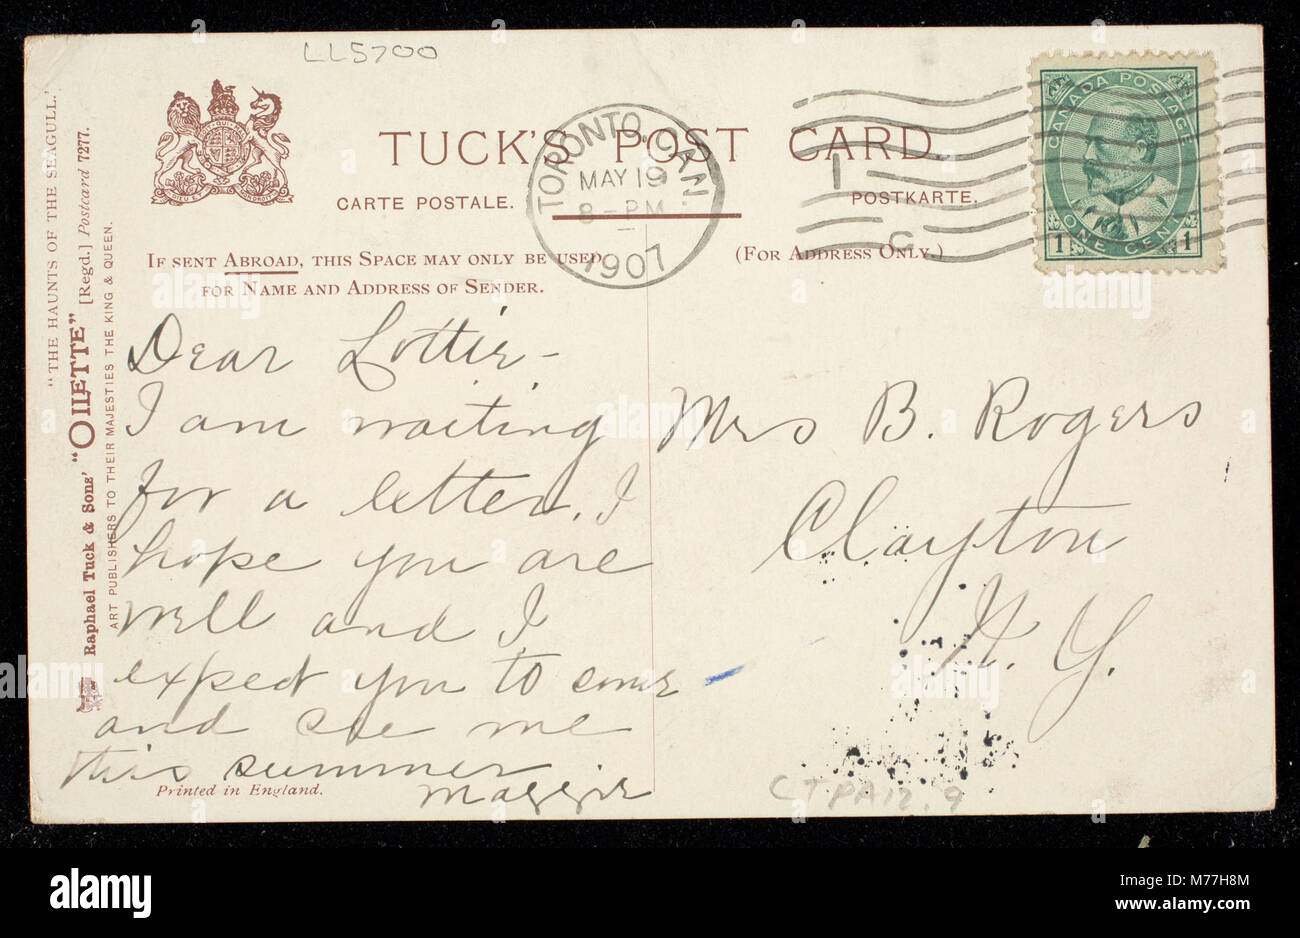 LL5700
TUCK'S POST CARD
CARTE POSTALE.
POSTKARTE.
TORONTO, CAN.
MAY 19
8-PM
1907
1
C
CANADA POSTAGE
1 ONE CENT 1
IF SENT ABROAD, THIS SPACE MAY ONLY BE USED
FOR NAME AND ADDRESS OF SENDER.
(FOR ADDRESS ONLY.)
"THE HAUNTS OF THE SEAGULL."
Raphael Tuck & Sons' "OILETTE" [Regd.] Postcard 7277.
ART PUBLISHERS TO THEIR MAJESTIES THE KING & QUEEN.
Dear Lottie –
I am waiting
for a letter. I
hope you are
well and I
expect you to come
and see me
this summer
Maggie
Printed in England.
Mrs B. Rogers
Clayton
N. Y.
CTPA12.9
alamy
www.alamy.com
Image ID: M77H8M